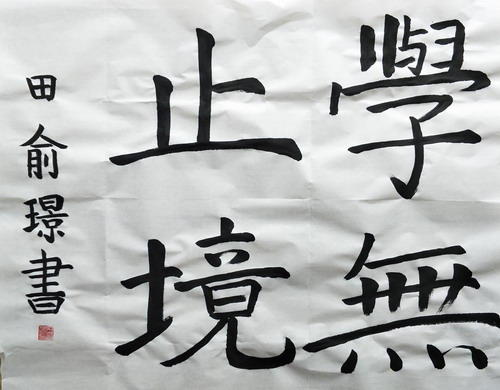 學無
止境
田俞璟書